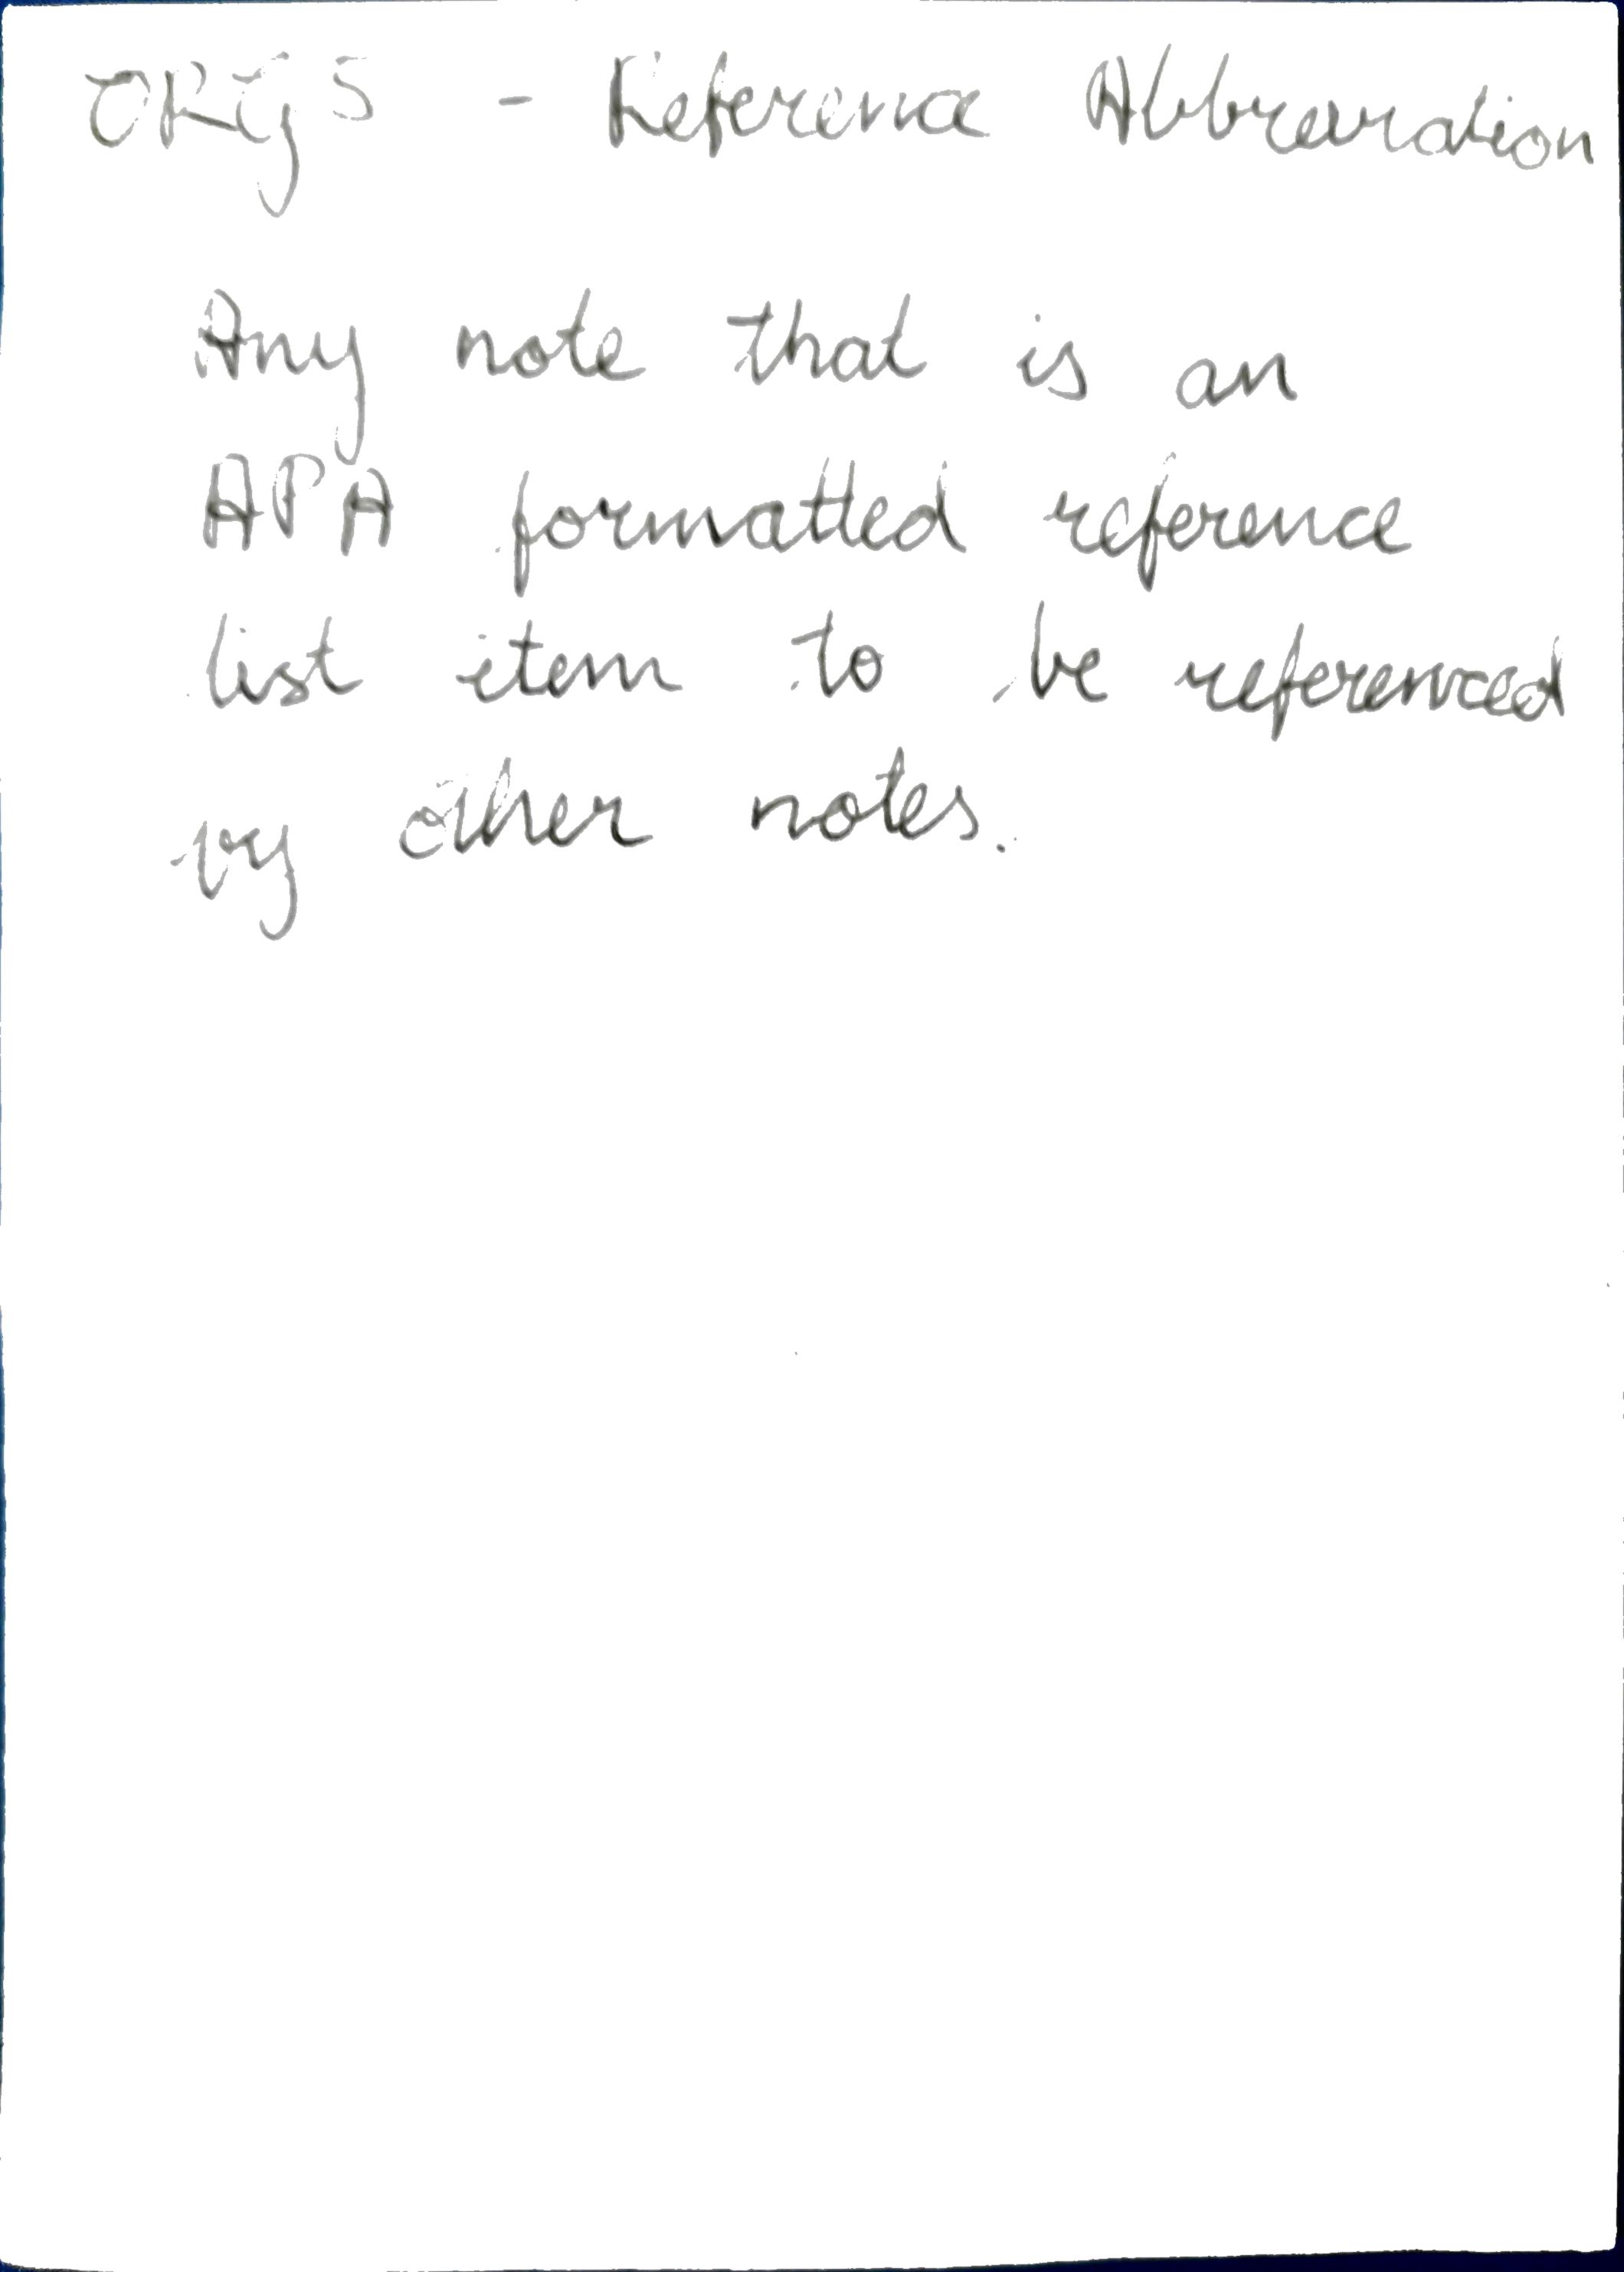 - Reference Abbreviation
Any note that is an
APA formatted reference
list item to be referenced
by other notes.